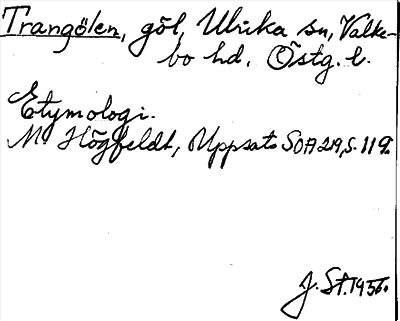 Trangölen, göl, Ulrika sn, Valke-
bo hd, Östg. l.
Etymologi.
M Högfeldt, Uppsats SOA 219, s. 119.
J. St. 1956.